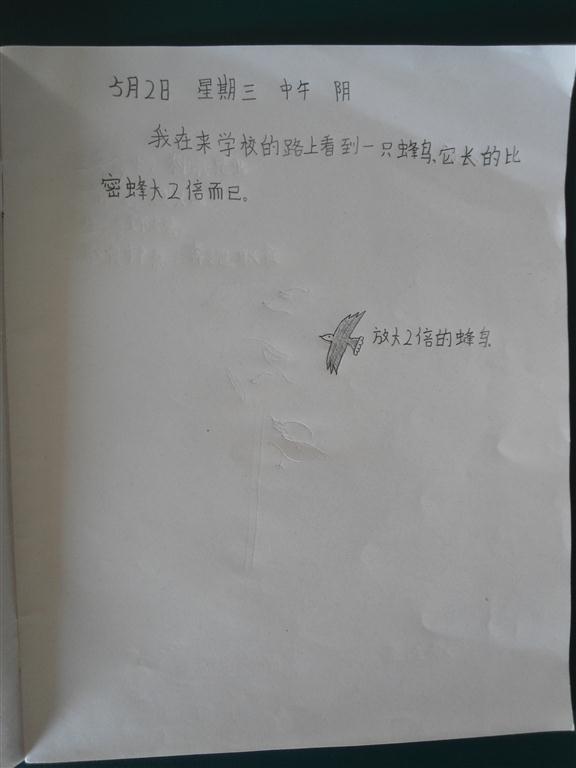 5月2日 星期三 中午 阴
我在来学校的路上看到一只蜂鸟,它长的比
密蜂大2倍而已。
放大2倍的蜂鸟